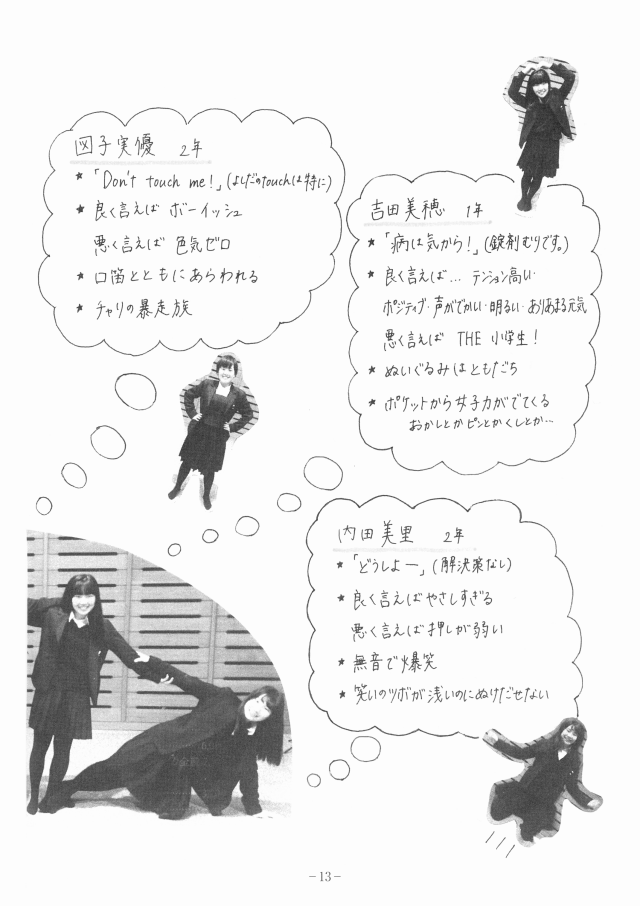 図子実優 2年
★「Don't touch me!」(よしだのtouchは特に)
★ 良く言えば ボーイッシュ
悪く言えば 色気ゼロ
★ 口笛とともにあらわれる
★ チャリの暴走族
吉田美穂 1年
★「病は気から!」(錠剤むりです。)
★ 良く言えば… テンション高い・
ポジティブ・声がでかい・明るい・ありあまる元気
悪く言えば THE 小学生!
★ ぬいぐるみはともだち
★ ポケットから女子力がでてくる
おかしとかピンとかくしとか…
内田美里 2年
★「どうしよー」(解決策なし)
★ 良く言えばやさしすぎる
悪く言えば押しが弱い
★ 無音で爆笑
★ 笑いのツボが浅いのにぬけだせない
-13-